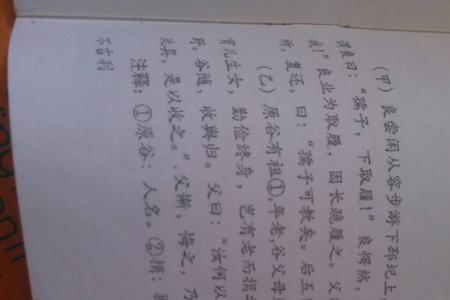 （甲）良尝闲从容步游下邳圯上
谓良曰：“孺子，下取履！”良愕然，
良业为取履，因长跪履之。父
所，复还，曰：“孺子可教矣。后五
（乙）原谷有祖①，年老，谷父母
育儿生女，勤俭终身，岂有老而捐
谷随，收舆归。父曰：“汝何以
凶具，是以收之。”父惭，悔之，乃
注释：①原谷：人名。②捐：
不吉利